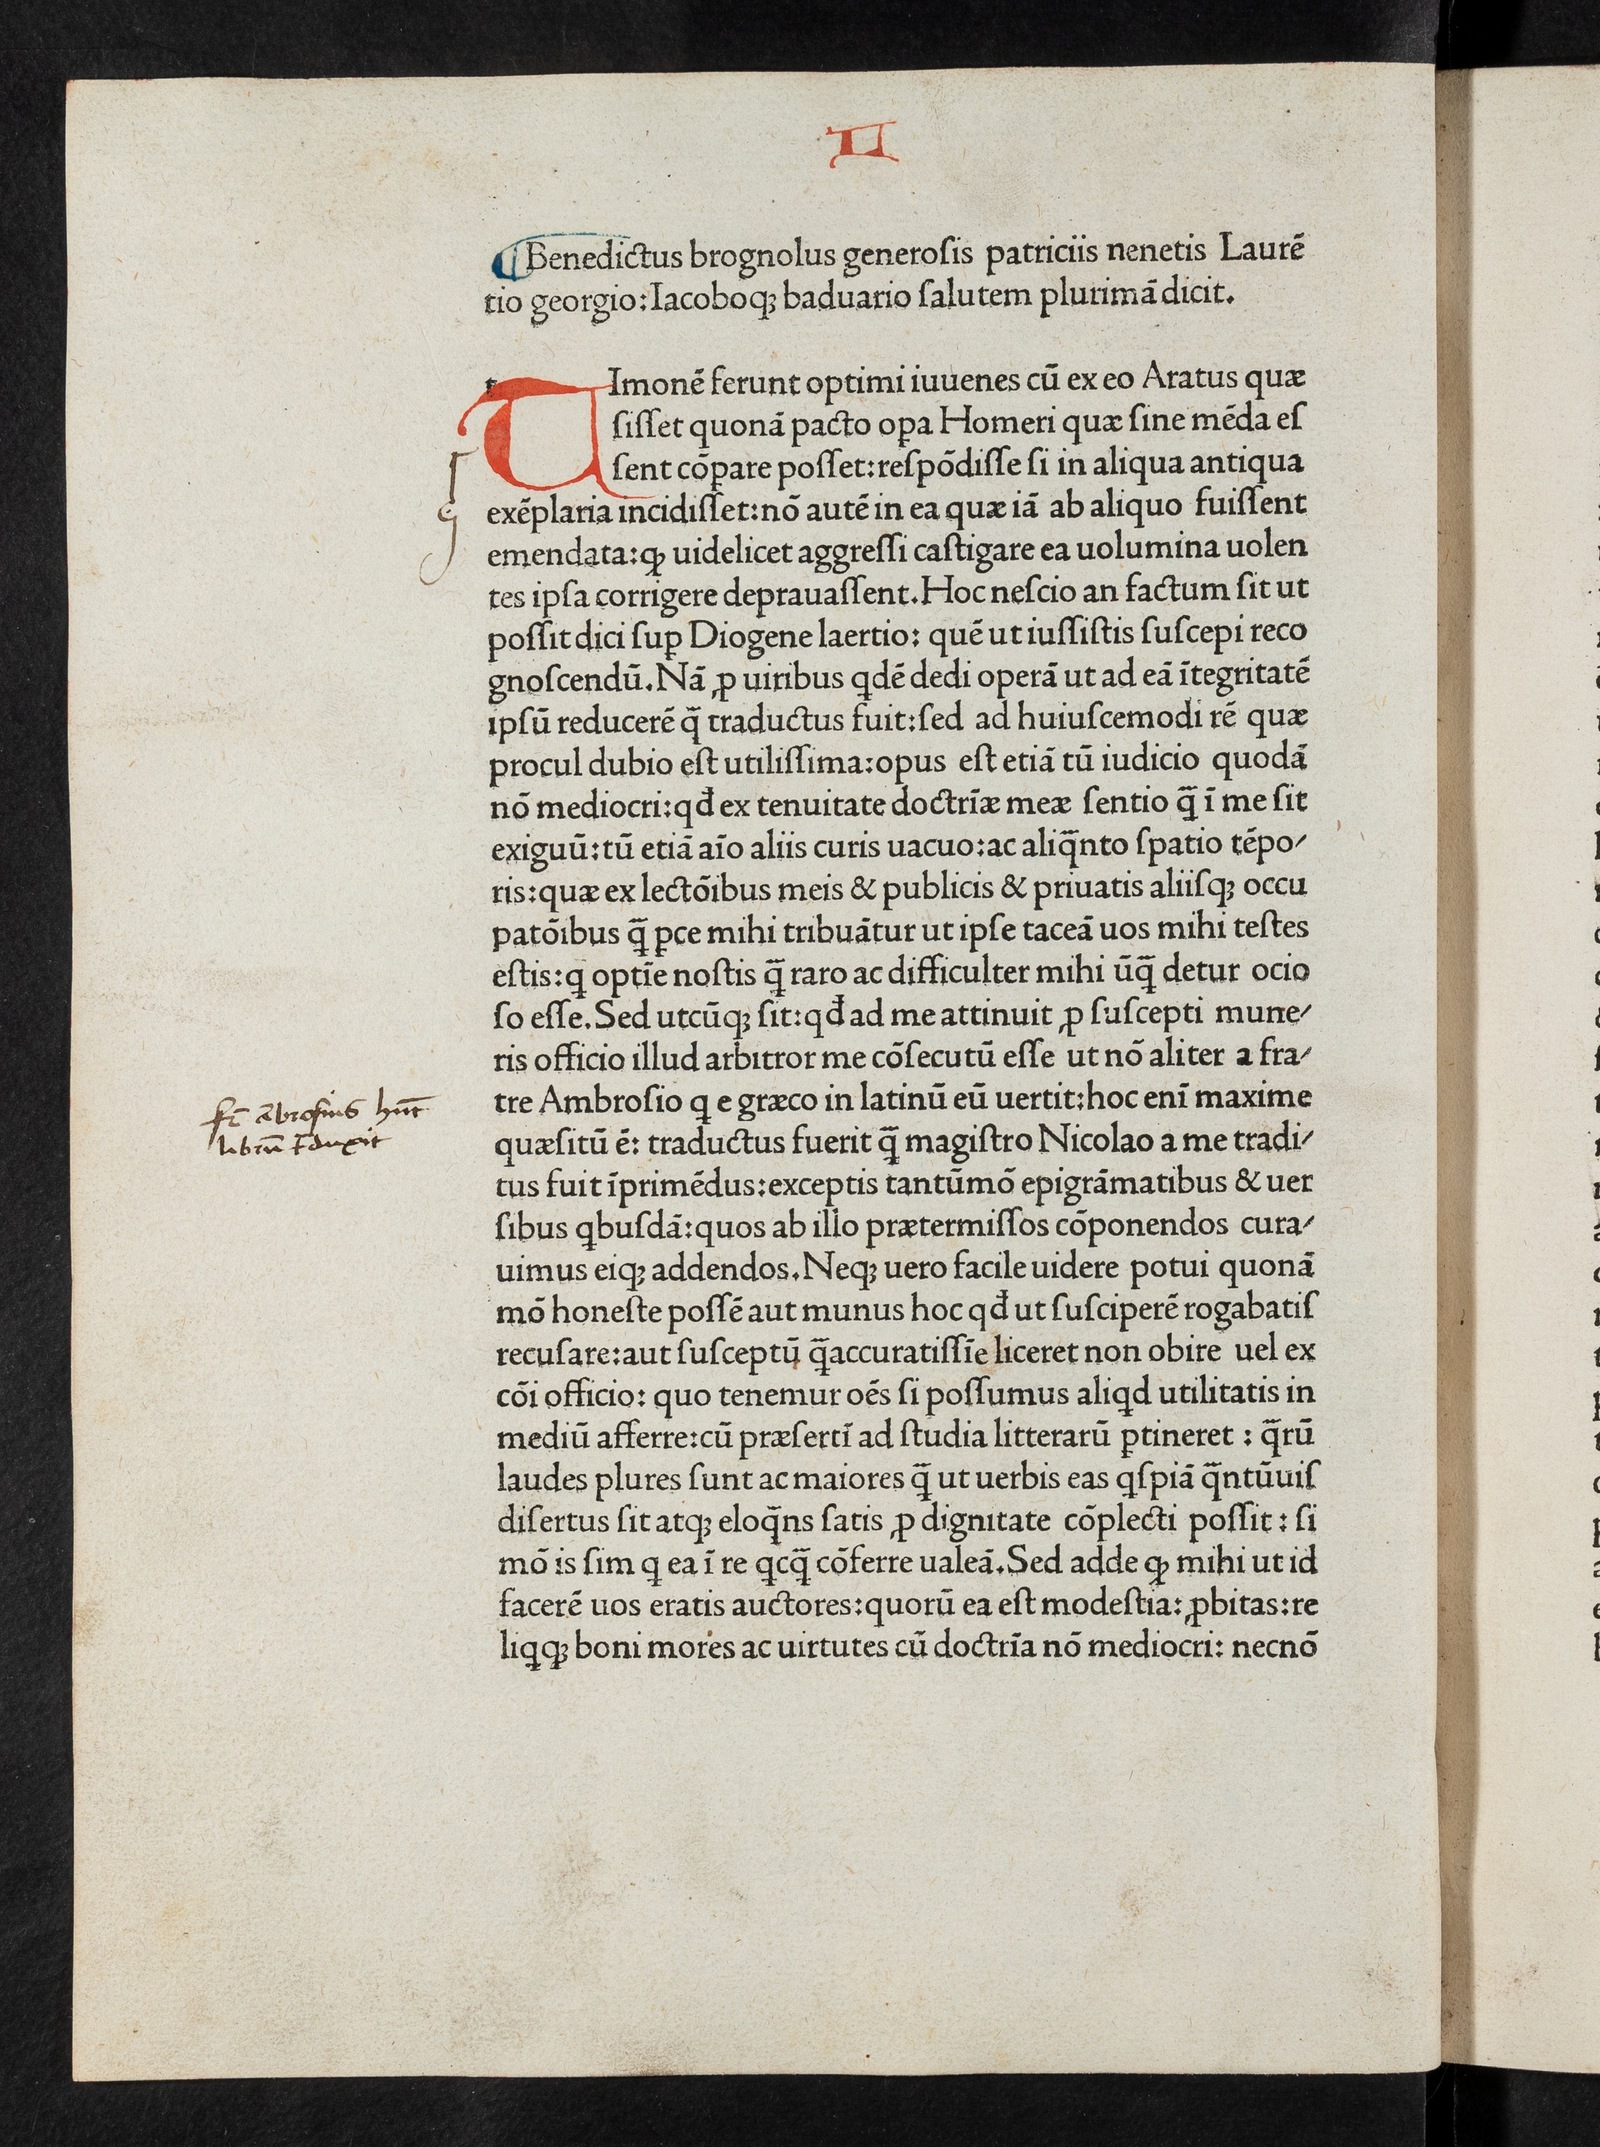 II
Benedictus brognolus generoſis patriciis nenetis Laurē
tio georgio: Iacoboq; baduario ſalutem plurimā dicit.
TImonē ferunt optimi iuuenes cū ex eo Aratus quæ
ſiſſet quonā pacto oꝑa Homeri quæ ſine mēda eſ
ſent cōpare poſſet: reſpōdiſſe ſi in aliqua antiqua
exēplaria incidiſſet: nō autē in ea quæ iā ab aliquo fuiſſent
emendata: ꝙ uidelicet aggreſſi caſtigare ea uolumina uolen
tes ipſa corrigere deprauaſſent. Hoc neſcio an factum ſit ut
poſſit dici ſuꝑ Diogene laertio: quē ut iuſſiſtis ſuſcepi reco
gnoſcendū. Nā ꝓ uiribus ꝗdē dedi operā ut ad eā ītegritatē
ipſū reducerē q̄ traductus fuit: ſed ad huiuſcemodi rē quæ
procul dubio eſt utiliſſima: opus eſt etiā tū iudicio quodā
nō mediocri: qđ ex tenuitate doctrīæ meæ ſentio q̄ ī me ſit
exiguū: tū etiā aīo aliis curis uacuo: ac aliq̄nto ſpatio tēpo/
ris: quæ ex lectōibus meis & publicis & priuatis aliiſq; occu
patōibus q̄ ꝑce mihi tribuātur ut ipſe taceā uos mihi teſtes
eſtis: ꝗ optīe noſtis q̄ raro ac difficulter mihi ūq̄ detur ocio
ſo eſſe. Sed utcūq; ſit: qđ ad me attinuit ꝓ ſuſcepti mune/
ris officio illud arbitror me cōſecutū eſſe ut nō aliter a fra/
tre Ambroſio ꝗ e græco in latinū eū uertit: hoc enī maxime
quæſitū ē: traductus fuerit q̄ magiſtro Nicolao a me tradi/
tus fuit īprimēdus: exceptis tantūmō epigrāmatibus & uer
ſibus ꝗbuſdā: quos ab illo prætermiſſos cōponendos cura/
uimus eiq; addendos. Neq; uero facile uidere potui quonā
mō honeſte poſſē aut munus hoc qđ ut ſuſciperē rogabatiſ
recuſare: aut ſuſceptū q̄accuratiſſīe liceret non obire uel ex
cōi officio: quo tenemur oēs ſi poſſumus aliꝗd utilitatis in
mediū afferre: cū præſertī ad ſtudia litterarū ꝑtineret : q̄rū
laudes plures ſunt ac maiores q̄ ut uerbis eas ꝗſpiā q̄ntūuiſ
diſertus ſit atq; eloq̄ns ſatis ꝓ dignitate cōplecti poſſit : ſi
mō is ſim ꝗ ea ī re ꝗcq̄ cōferre ualeā. Sed adde ꝙ mihi ut id
facerē uos eratis auctores: quorū ea eſt modeſtia: ꝓbitas: re
liꝗq; boni mores ac uirtutes cū doctrīa nō mediocri: necnō
ābroſius